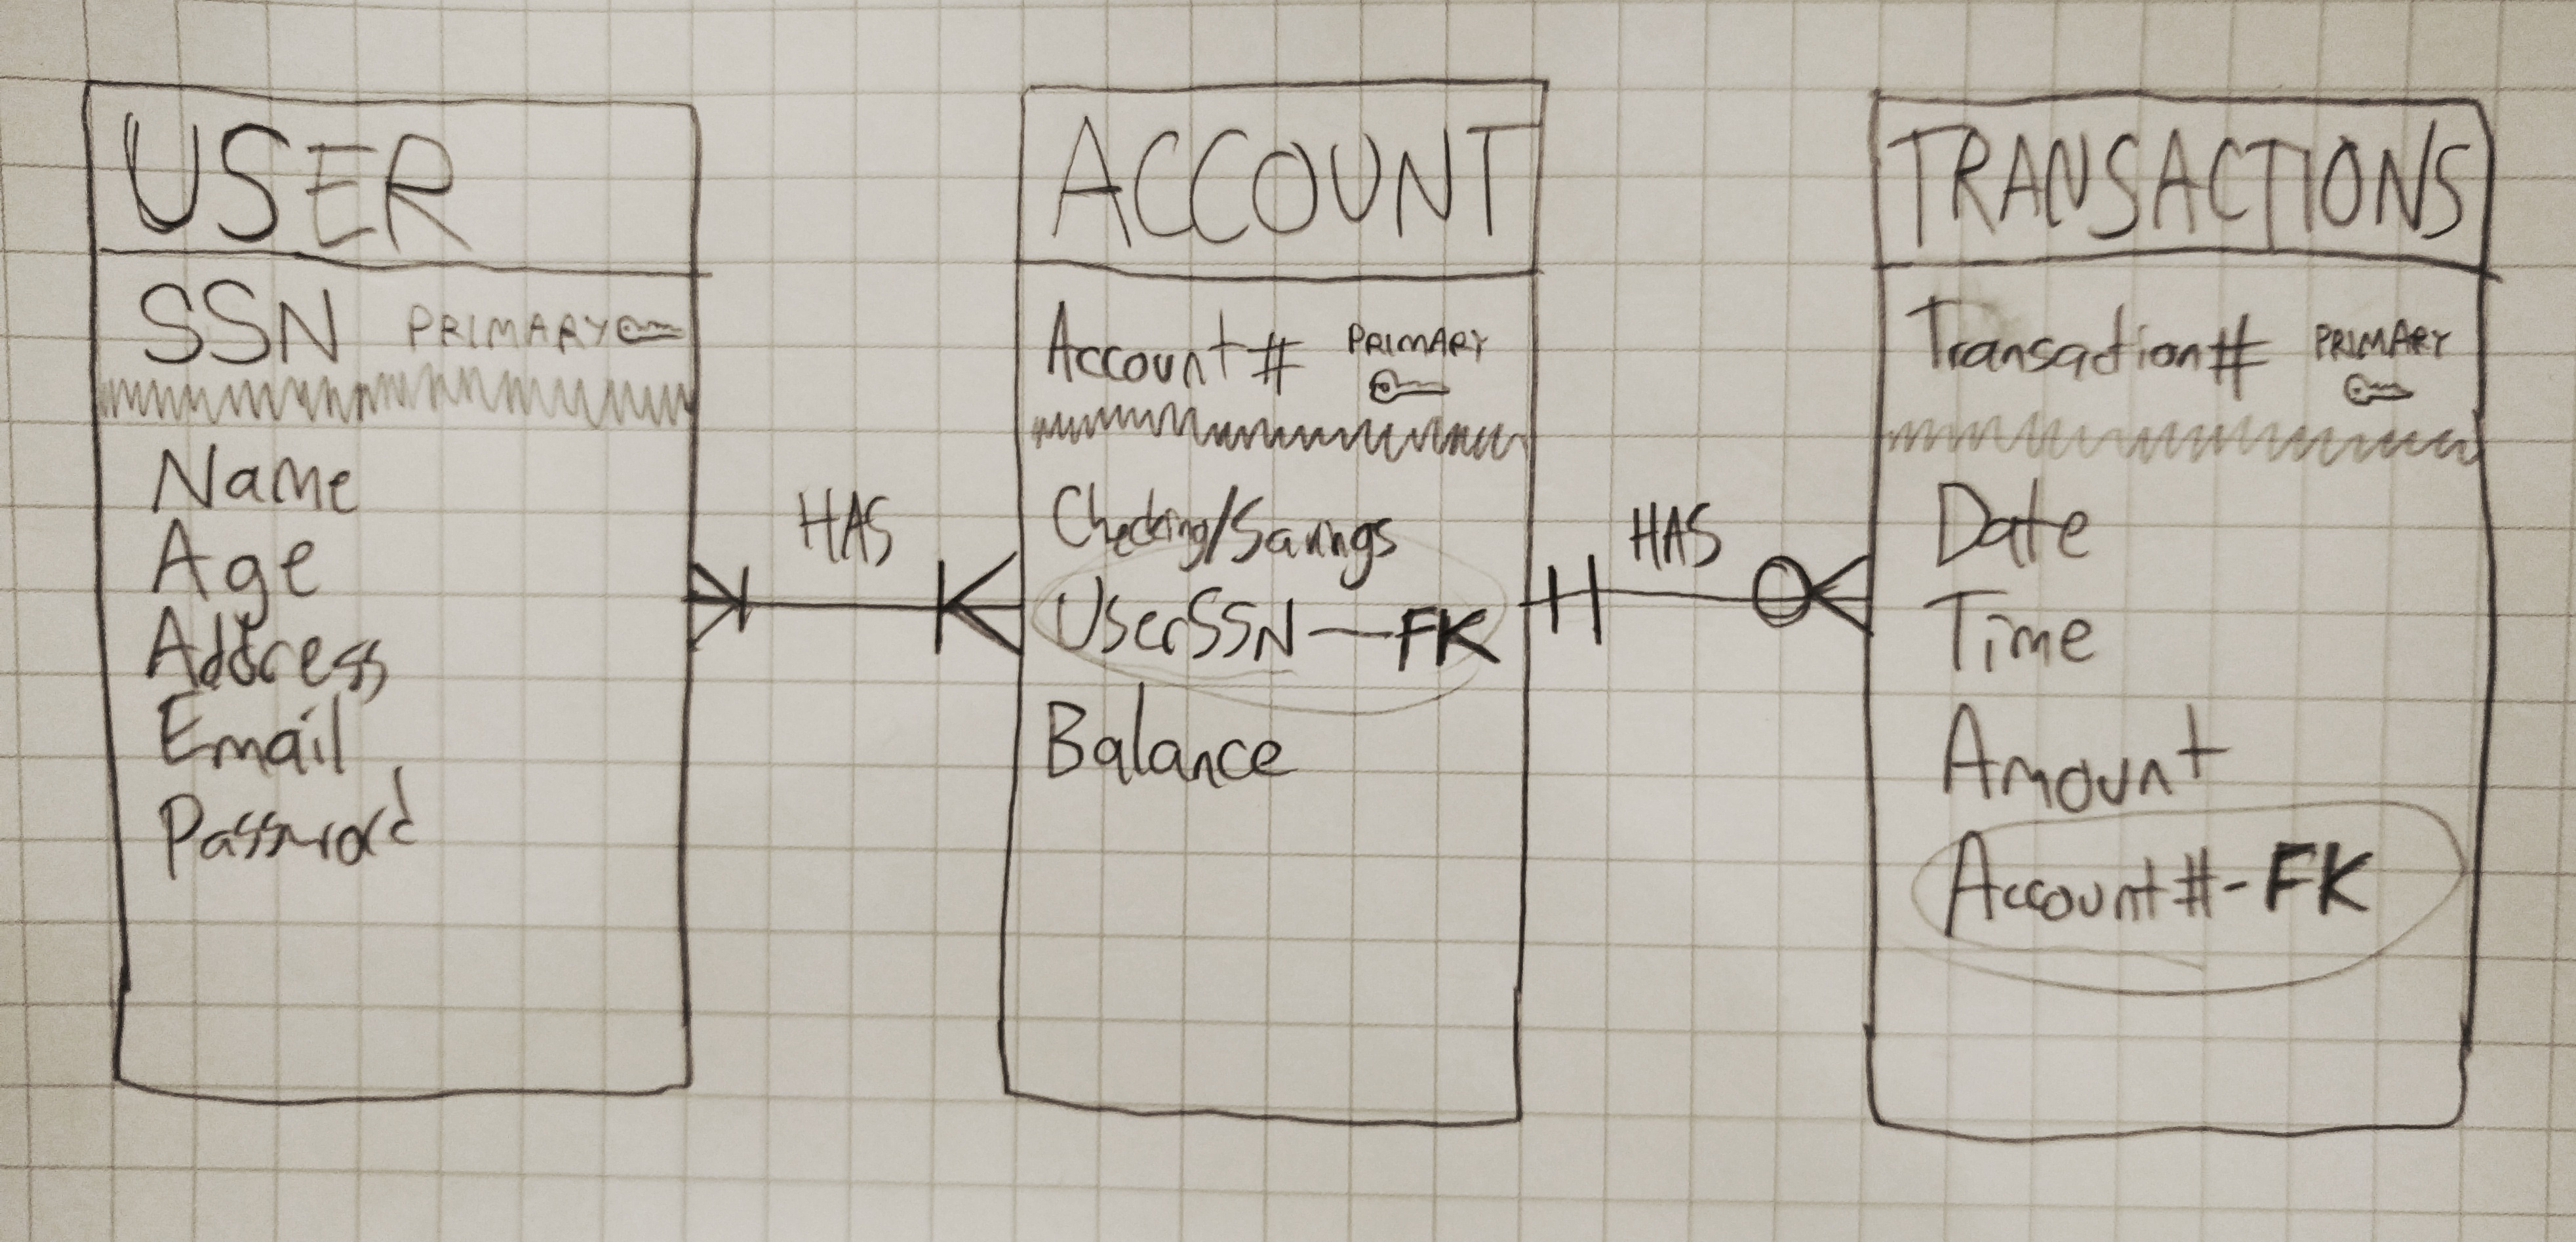 USER
SSN PRIMARY
Name
Age
Address
Email
Password
HAS
ACCOUNT
Account # PRIMARY
Checking/Savings
UserSSN — FK
Balance
HAS
TRANSACTIONS
Transaction # PRIMARY
Date
Time
Amount
Account # - FK